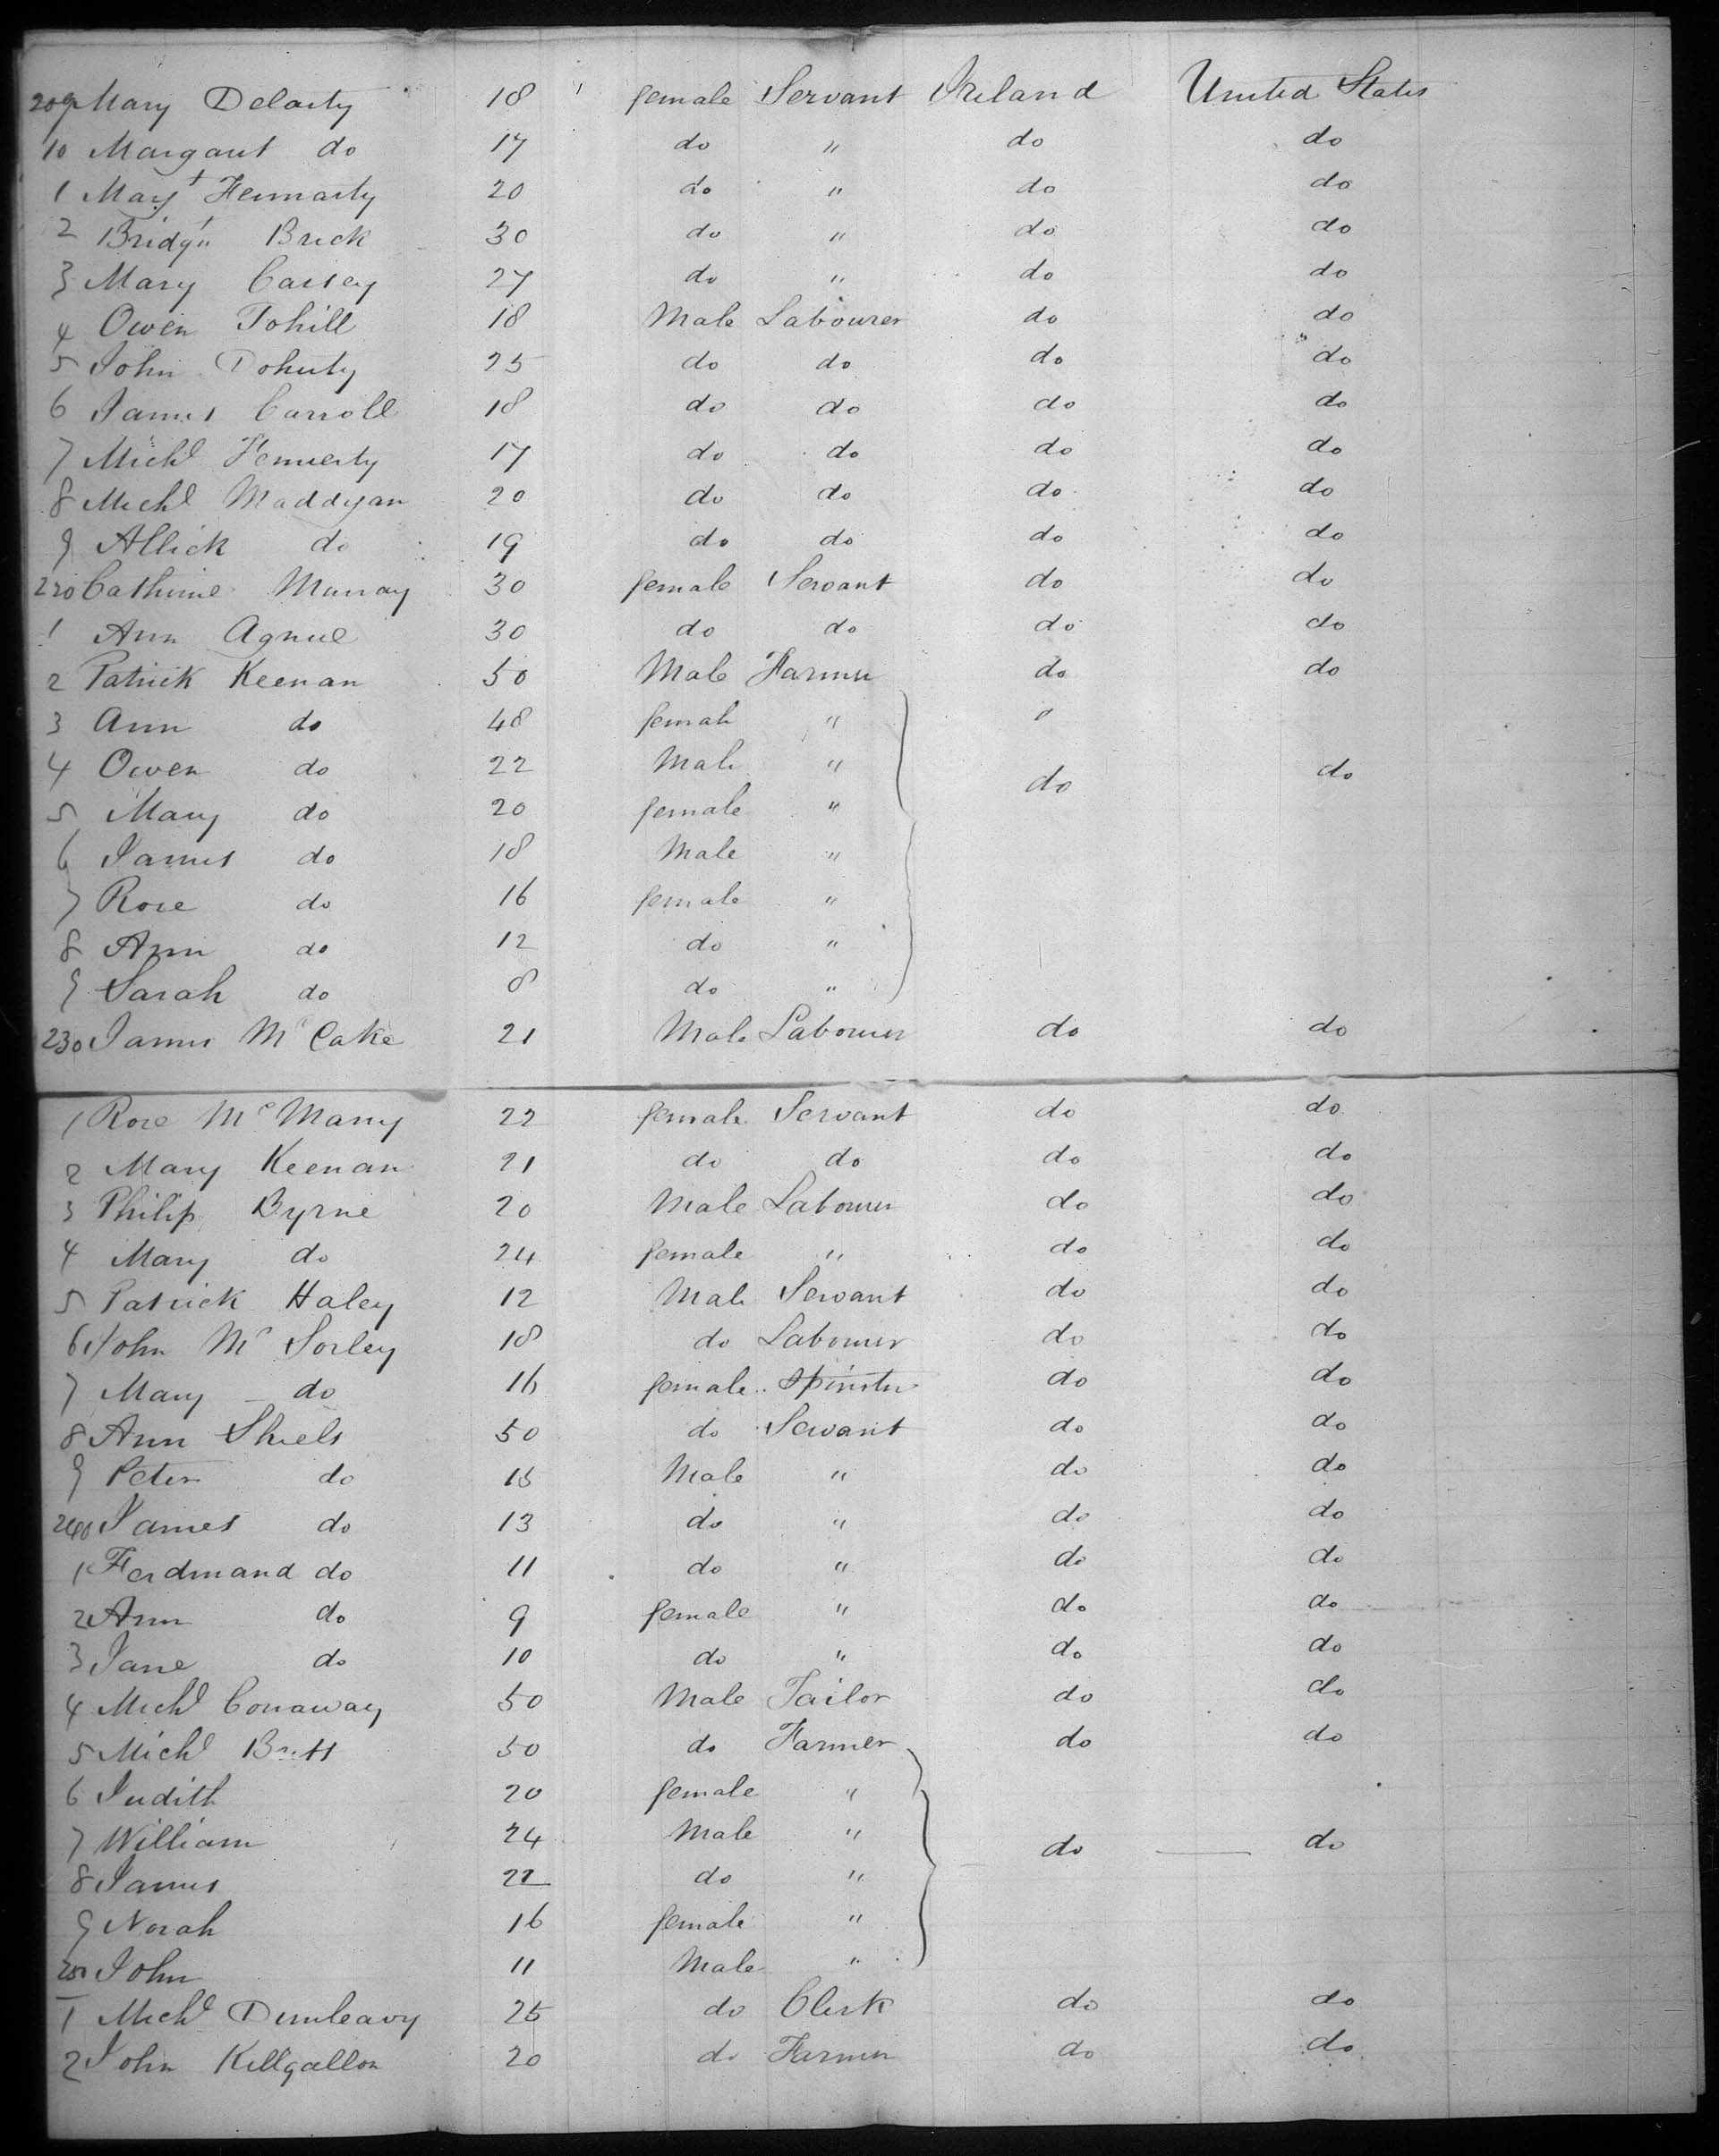 209 Mary Delarty 18 female Servant Ireland United States
10 Margaret do 17 do " do do
1 Mary Fennarty 20 do " do do
2 Bridgt Brick 30 do " do do
3 Mary Carsey 27 do " do do
4 Owen Tohill 18 Male Labourer do do
5 John Doherty 25 do do do do
6 James Carroll 18 do do do do
7 Michl Fennerty 17 do do do do
8 Michl Maddigan 20 do do do do
9 Allick do 19 do do do do
220 Catherine Murray 30 female Servant do do
1 Ann Agnue 30 do do do do
2 Patrick Keenan 50 Male Farmer do do
3 Ann do 48 female "
4 Owen do 22 Male " do do
5 Mary do 20 female "
6 James do 18 Male "
7 Rose do 16 female "
8 Ann do 12 do "
9 Sarah do 8 do "
230 James Mc Cake 21 Male Labourer do do
1 Rose Mc Many 22 female Servant do do
2 Mary Keenan 21 do do do do
3 Philip Byrne 20 Male Labourer do do
4 Mary do 24 female " do do
5 Patrick Haley 12 Male Servant do do
6 John Mc Sorley 18 do Labourer do do
7 Mary do 16 female Spinster do do
8 Ann Shiels 50 do Servant do do
9 Peter do Male " do do
240 James do 13 do " do do
1 Ferdinand do 11 do " do do
2 Ann do 9 female " do do
3 Jane do 10 do " do do
4 Michl Conaway 50 Male Tailor do do
5 Michl 50 do Farmer do do
6 Judith 20 female "
7 William 24 Male " do do
8 James 22 do "
9 Norah 16 female "
250 John 11 Male "
1 Michl Dunleavy 25 do Clerk do do
2 John Killgallon 20 do Farmer do do